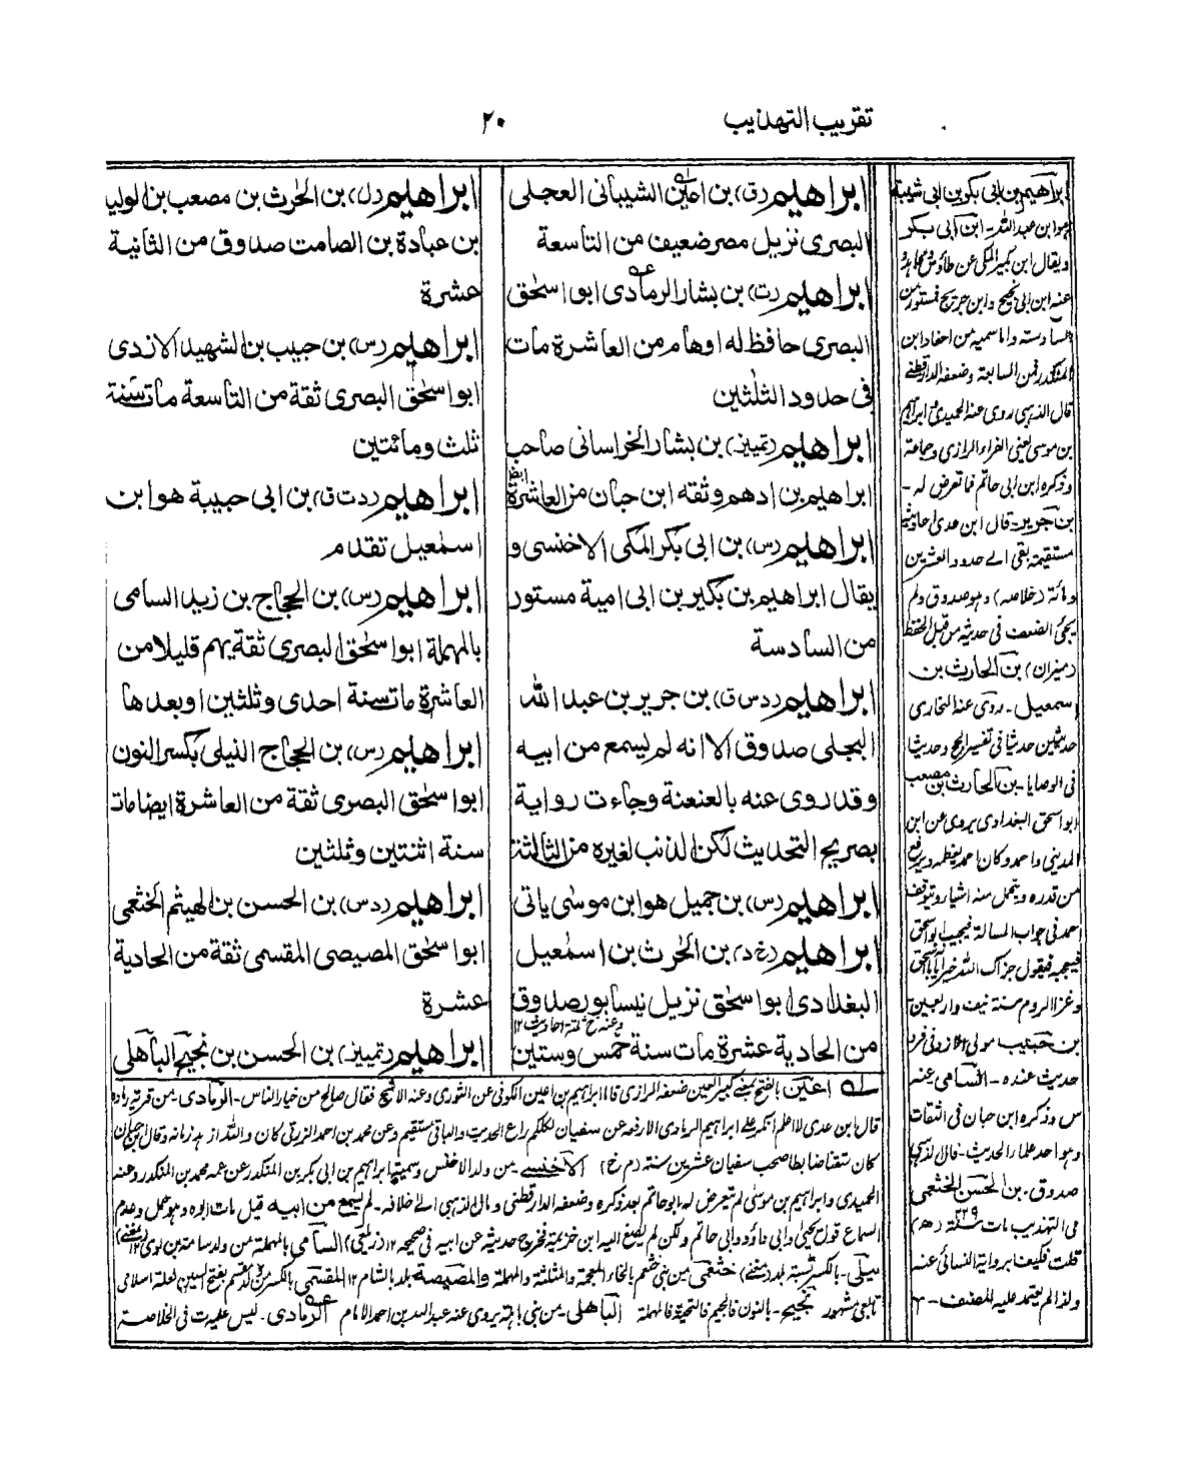 تقريب التهذيب
٢٠
ابراهيم (ق) بن اعين الشيبانى العجلى
البصرى نزيل مصر ضعيف من التاسعة
ابراهيم (دت) بن بشار الرمادى ابو اسحٰق
البصرى حافظ له اوهام من العاشرة مات
فى حدود الثلٰثين
ابراهيم (تمييز) بن بشار الخراسانى صاحب
ابراهيم بن ادهم وثقه ابن حبان من العاشرة ايضا
ابراهيم (س) بن ابى بكر المكى الاخنسى و
يقال ابراهيم بن بكير بن ابى امية مستور
من السادسة
ابراهيم (د س ق) بن جرير بن عبد الله
البجلى صدوق الا انه لم يسمع من ابيه
وقد روى عنه بالعنعنة وجاءت رواية
بصريح التحديث لكن الذنب لغيره من الثالثة
ابراهيم (س) بن جميل هو ابن موسٰى ياتى
ابراهيم (خ د) بن الحٰرث بن اسمٰعيل
البغدادى ابو اسحٰق نزيل نيسابور صدوق
من الحادية عشرة مات سنة خمس وستين
ابراهيم (ل) بن الحٰرث بن مصعب بن الوليد
بن عبادة بن الصامت صدوق من الثانية
عشرة
ابراهيم (س) بن حبيب بن الشهيد الازدى
ابو اسحٰق البصرى ثقة من التاسعة مات سنة
ثلث ومائتين
ابراهيم (د ت ق) بن ابى حبيبة هو ابن
اسمٰعيل تقدم
ابراهيم (س) بن الحجاج بن زيد السامى
بالمهملة ابو اسحٰق البصرى ثقة يهم قليلا من
العاشرة مات سنة احدى وثلثين او بعدها
ابراهيم (س) بن الحجاج النيلى بكسر النون
ابو اسحٰق البصرى ثقة من العاشرة ايضا مات
سنة اثنتين وثلثين
ابراهيم (د س) بن الحسن بن الهيثم الخثعمى
ابو اسحٰق المصيصى المقسمى ثقة من الحادية
عشرة
ابراهيم (تمييز) بن الحسن بن نجيح الباهلى
ابراهيم بن ابى بكر بن ابى شيبة
هو ابن عبد الله - ابن ابى بكر
ويقال ابن بكير المكى عن طاؤس ومجاهد و
عنه ابن ابى نجيح وابن جريج مستور من
السادسة واما سميه من احفاد ابن
المنكدر فمن السابعة وضعفه الدارقطنى
قال الذهبى روى عنه الحميدى وابراهيم
بن موسى يعنى الفراء الرازى وجماعة
وذكره ابن ابى حاتم فما تعرض له -
بن جرير - قال ابن عدى احاديثه
مستقيمة بقى الى حدود العشرين
ومائة (خلاصه) وهو صدوق ولم
يجئ الضعف فى حديثه من قبل الحفظ
(ميزان) بن الحارث بن
اسمعيل - روى عنه البخارى
حديثين حديثا فى تفسير الحج وحديثا
فى الوصايا - بن الحارث بن مصعب
ابو اسحق البغدادى يروى عن ابن
المدينى واحمد وكان احمد يعظمه ويرفع
من قدره ويحمل منه اشياء ويتوقف
احمد فى جواب المسالة فيجيب ابو اسحق
فيعجبه فيقول جزاك الله خيرا يا ابا اسحق
وغزا الروم سنة نيف واربعين
بن حبيب مولى الازد وفى فرد
حديث عنده - السامى عنه
س وذكره ابن حبان فى الثقات
وهو احد علماء الحديث - قال الذهبى
صدوق - بن الحسن الخثعمى
فى التهذيب مات سنة ٢٢٩ (هـ)
قلت فكيف ابرواية النسائى عنه
ولذا لم يعتمد عليه المصنف - ١٢
اعين بالفتح ضعفه الرازى ابراهيم بن اعين الكوفى عن الثورى وعنه الاشج فقال صالح من خيار الناس - الرمادى
قال ابن عدى لا اعلم انكر على ابراهيم الرمادى الا رفعه عن سفيان لكلكم راع الحديث والباقى مستقيم وعن محمد بن احمد الزريقى كان والله ازهد اهل زمانه وقال ابن حبان
كان متقنا ضابطا صحب سفيان عشرين سنة (م خ) الاخنسى - من ولد الاخنس وسميه ابراهيم بن ابى بكر بن المنكدر عن عمه محمد بن المنكدر وعنه
الحميدى وابراهيم بن موسى لم يتعرض له ابو حاتم بعد ذكره وضعفه الدارقطنى ومال الذهبى الى خلافه - لم يسمع من ابيه قيل مات ابوه وهو حمل وعدم
السماع قول يحيى وابى داؤد وابى حاتم ولكن لم يصغ اليه ابن خزيمة فخرج حديثه عن ابيه فى صحيحه ١٢ (زيلعى) السامى بالمهملة من ولد سامة بن لوى (مغنى) ١٢
نيلى - بالكسر نسبة بلد (مغنى) خثعمى من بنى خثعم بالخاء المعجمة والمثلثة والمهملة والمصيصة بلد بالشام ١٢ المقسمى بالكسر بفتح السين
نجيح - بالنون فالجيم فالتحتية فالمهملة الباهلى - من بنى باهلة يروى عنه عبد الله بن احمد الامام الرمادى - ليس عليه ت فى الخلاصة